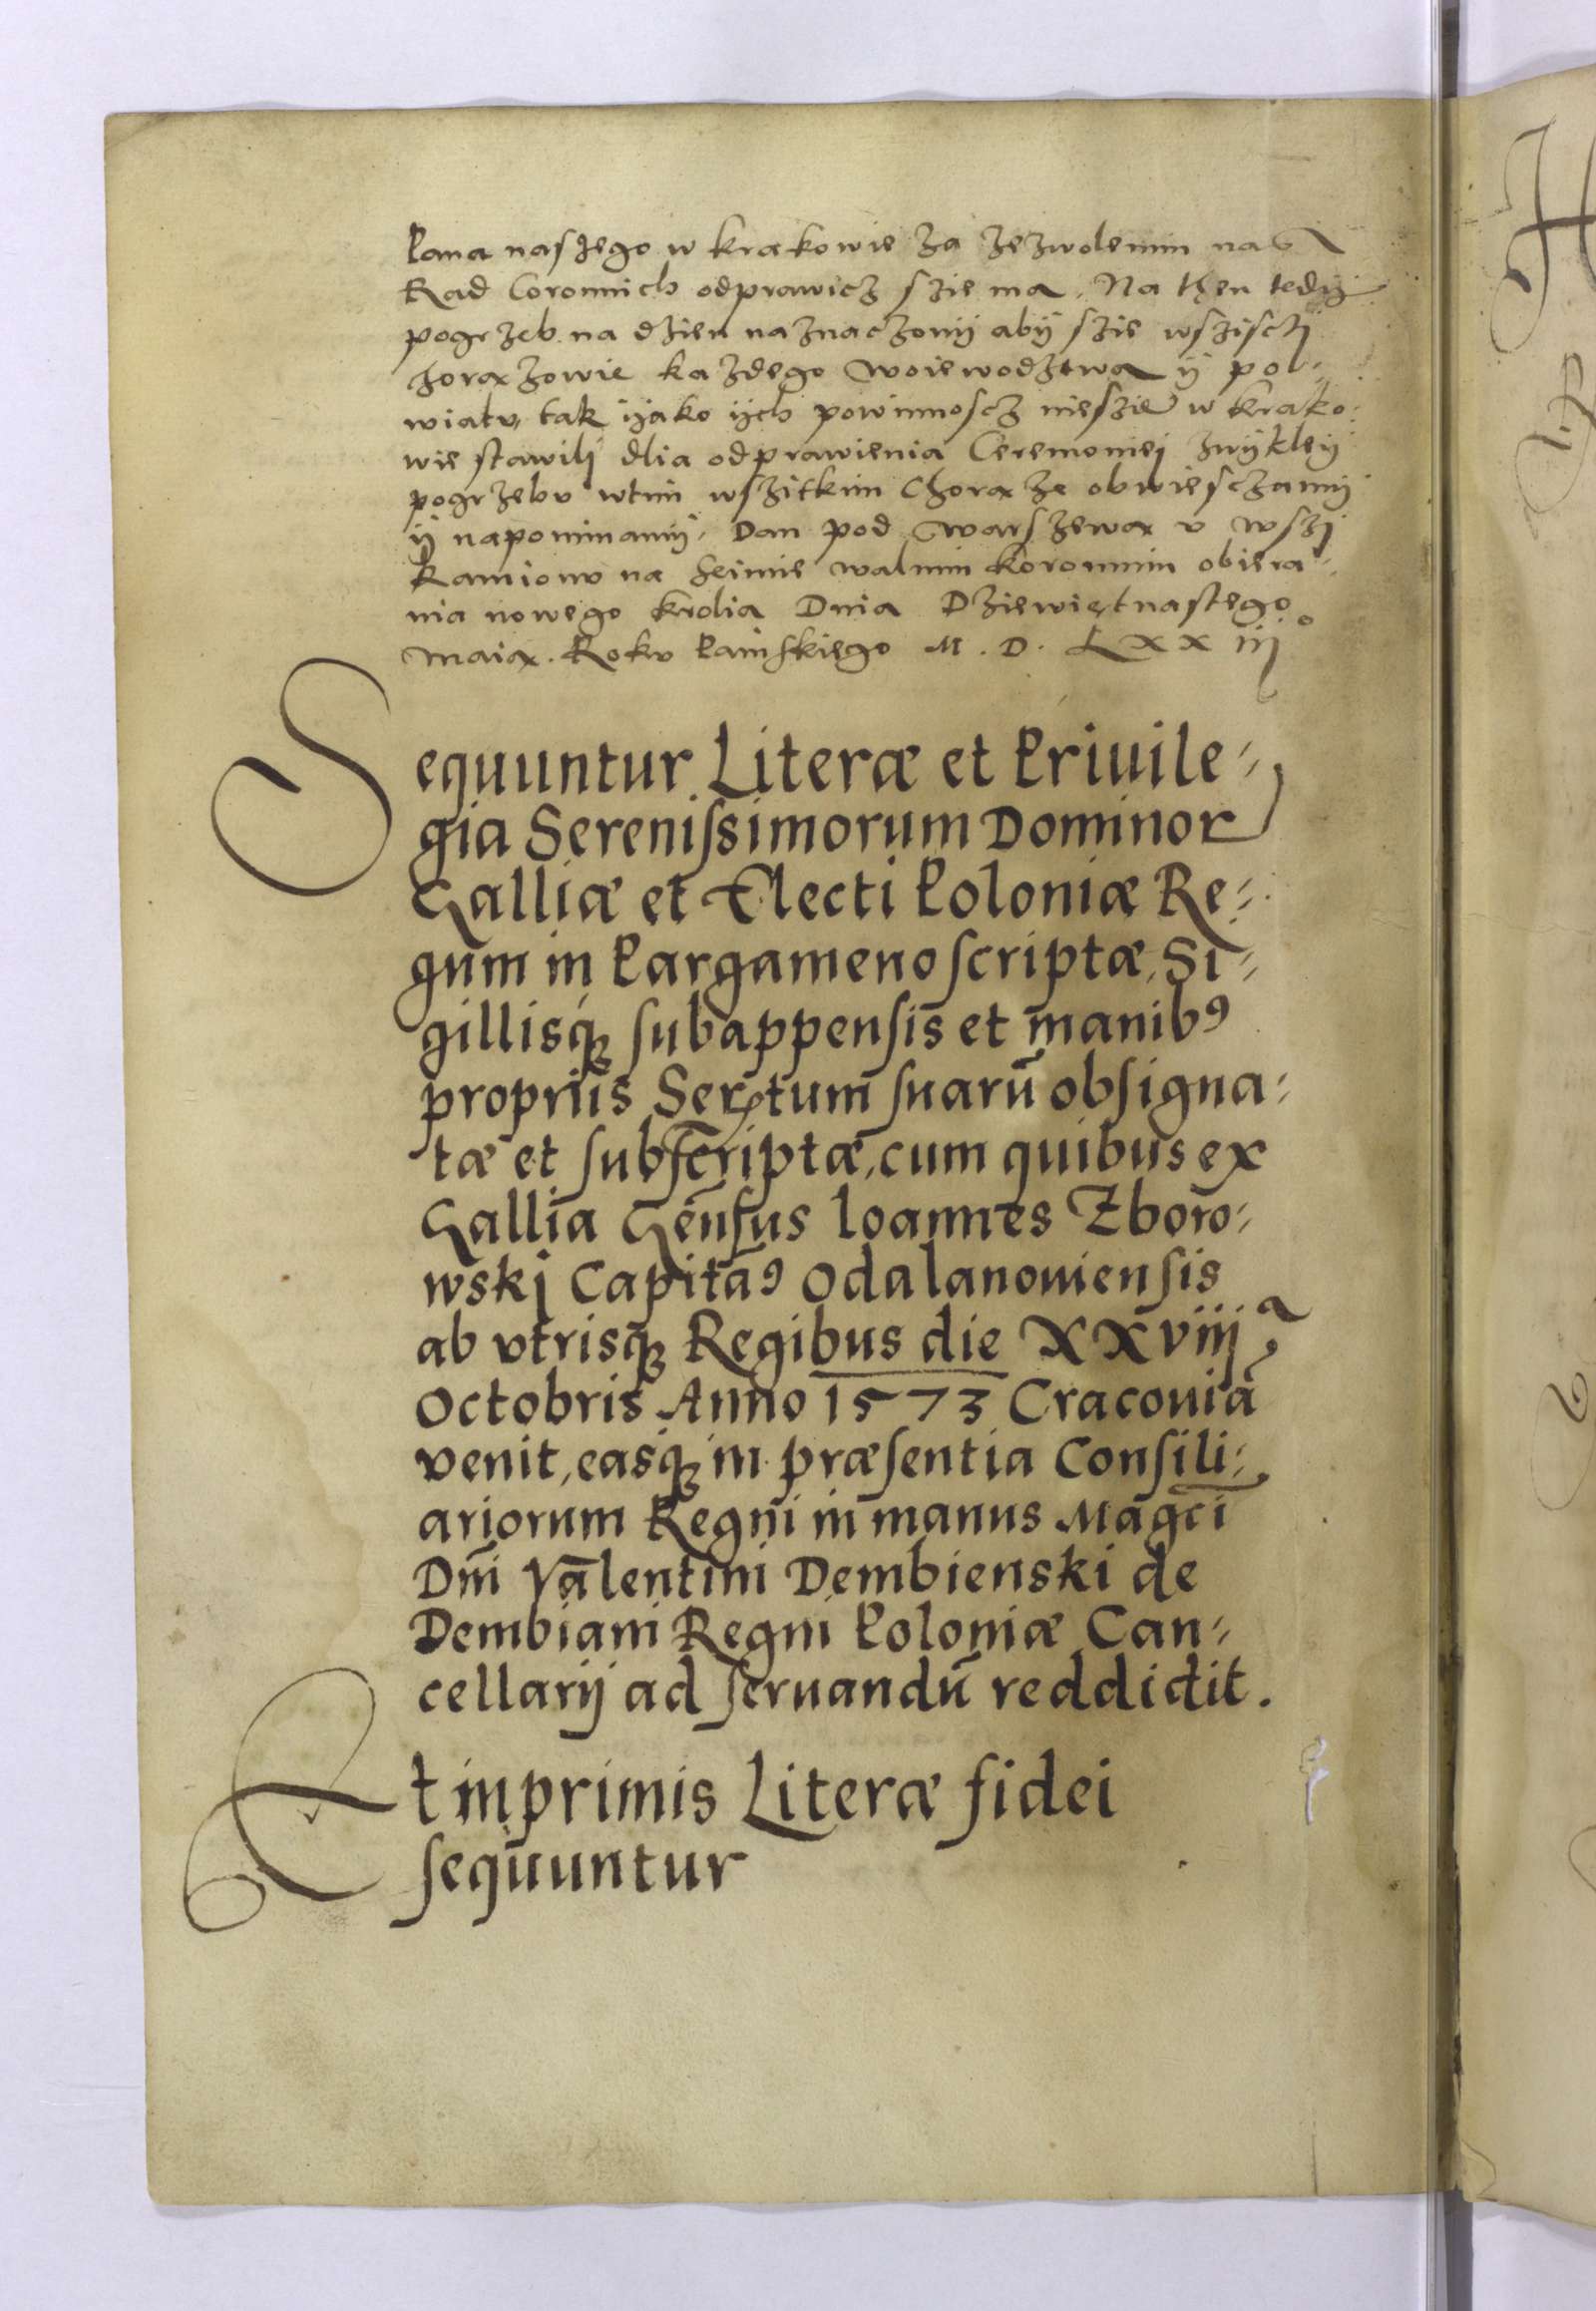 Pana naszego w krakowie za zezwolenim nas
Rad Coronnich odprawicz szie ma. Na then tedÿ
pogrzeb na dzien naznaczonÿ abÿ szie wszisczj
horazowie kazdego woiewodztwa ÿ po-
wiatu, tak ÿako ÿch powinnoscz niesie w krako-
wie stawilj dlia odprawienia Ceremoniej zwÿkleÿ
pogrzebu wtim wszitkim Choraze obwiesczamÿ
ÿ napominamÿ. Dan pod Warszewa u wszj
Kamionu na Seimie walnim koronnim obiera-
nia nowego krolia Dnia Dziewiętnastego
Maia. Roku Painskiego M. D. LXXiij°
Sequuntur Literæ et Priuile-
gia Serenissimorum Dominor
Galliæ et Electi Poloniæ Re-
gum in Pargameno scriptæ, Si-
gillisq₃ subappensis et manibꝰ
proprijs Sertum suarū obsigna-
tæ et subscriptæ, cum quibus ex
Gallia Gēnsus Ioannes Zboro-
wskj Capitāꝰ Odalanouiensis
ab vtrisq₃ Regibus die XXviijª
Octobris Anno 1573 Cracouiā
venit, easq₃ in præsentia Consili-
ariorum Regni in manus Magci
Dni Valentini Dembienski de
Dembiani Regni Poloniæ Can-
cellarij ad seruandū reddidit.
Et inprimis Literæ fidei
sequuntur